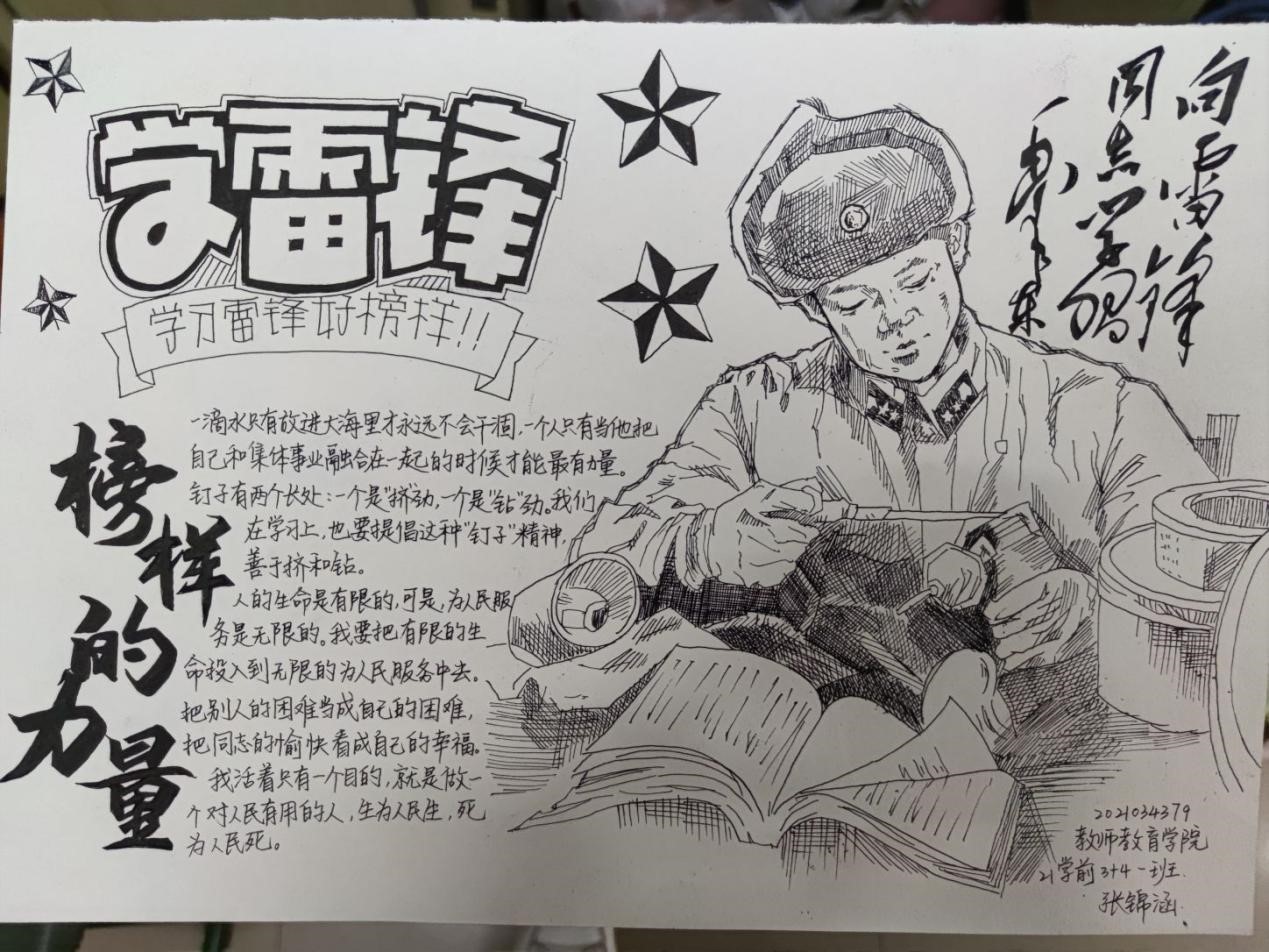 学雷锋
学习雷锋好榜样!!
向雷锋
同志学习
毛泽东
榜样的力量
一滴水只有放进大海里才永远不会干涸,一个人只有当他把
自己和集体事业融合在一起的时候才能最有力量。
钉子有两个长处:一个是"挤"劲,一个是"钻"劲。我们
在学习上,也要提倡这种"钉子"精神,
善于挤和钻。
人的生命是有限的,可是,为人民服
务是无限的。我要把有限的生
命投入到无限的为人民服务中去。
把别人的困难当成自己的困难,
把同志的愉快看成自己的幸福。
我活着只有一个目的,就是做一
个对人民有用的人,生为人民生,死
为人民死。
2021034379
教师教育学院
21学前3+4一班.
张锦涵.